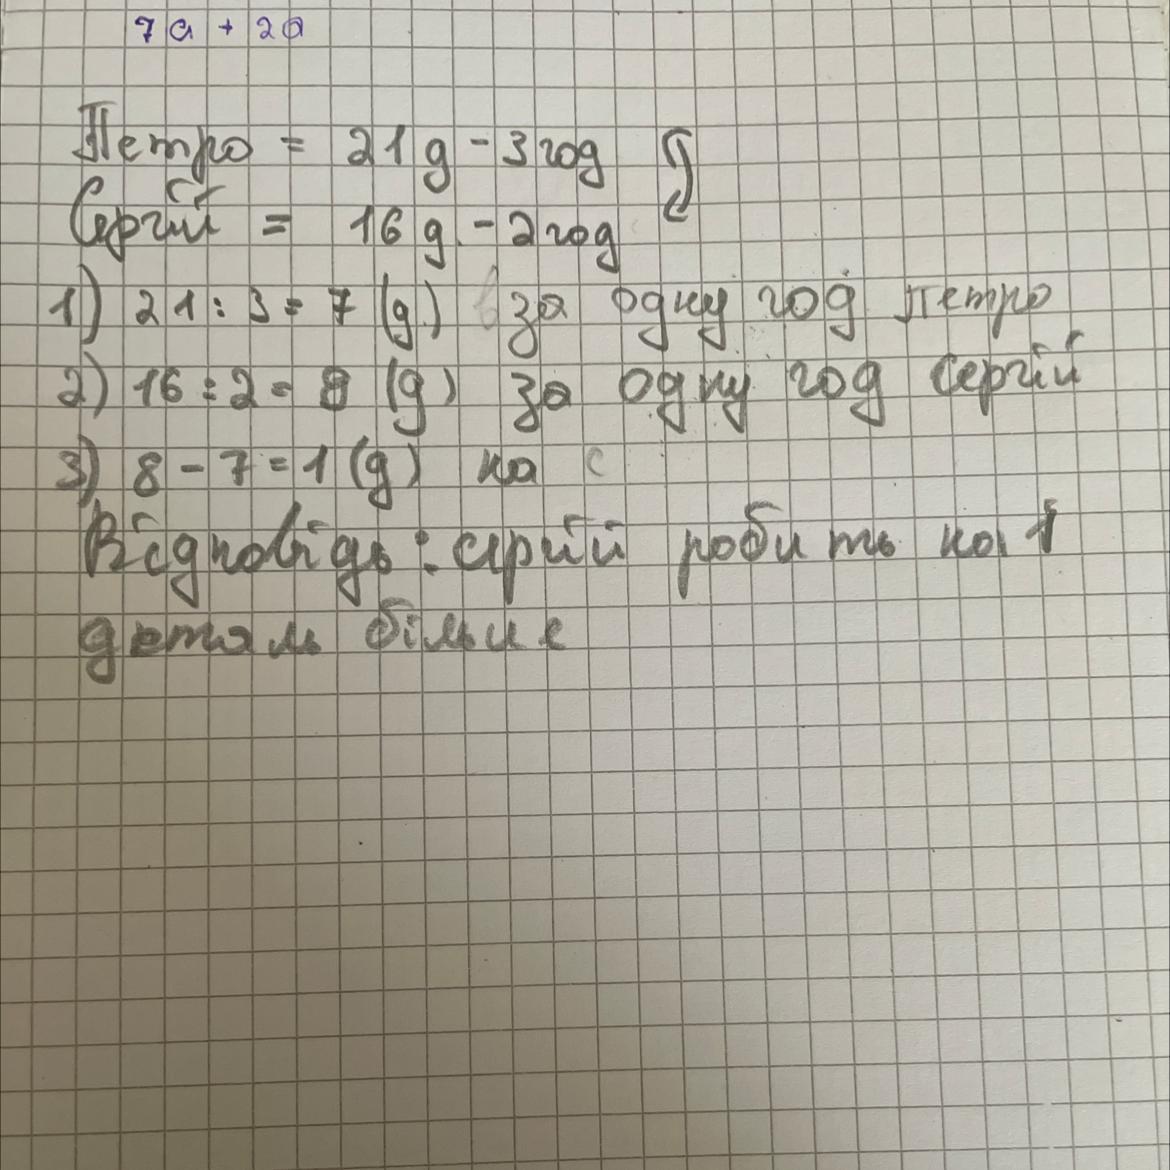 7a + 2a
Петро = 21д - 3год
Сергій = 16д. - 2год
1) 21 : 3 = 7 (д.) за одну год Петро
2) 16 : 2 = 8 (д) за одну год Сергій
3) 8 - 7 = 1 (д) на с
Відповідь: сергій робить на 1
деталь більше